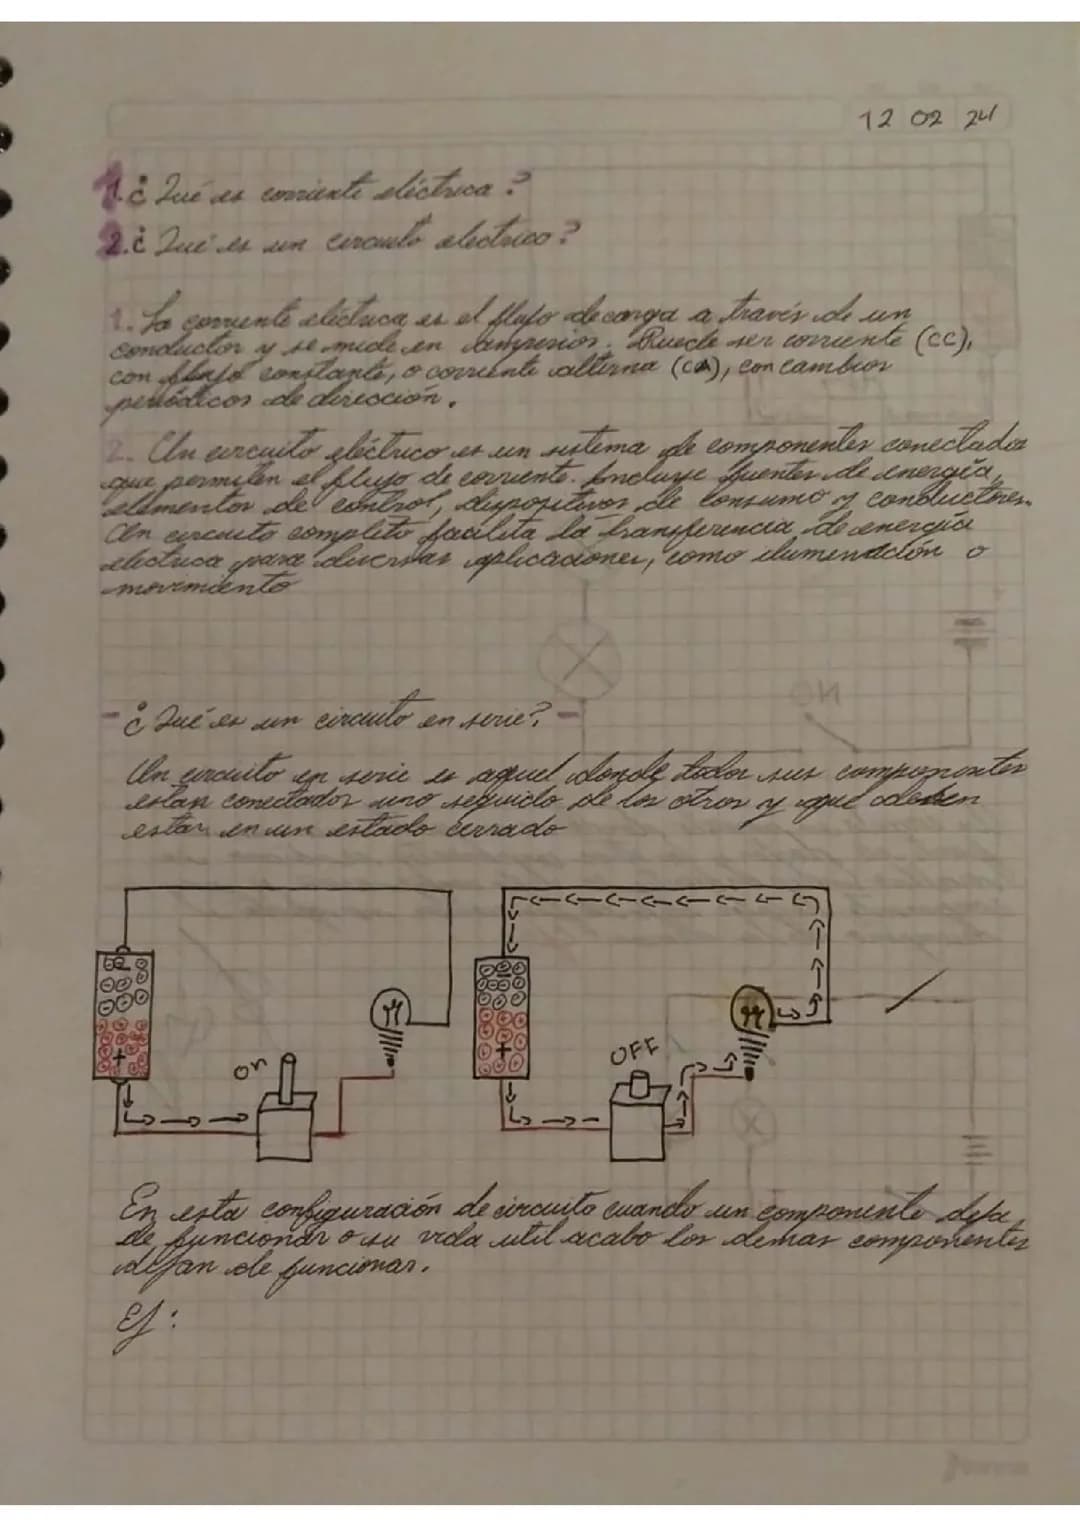 12 02 24
1. ¿Qué es corriente eléctrica?
2. ¿Qué es un circuito electrico?
1. La corriente eléctrica es el flujo de carga a través de un
conductor y se mide en amperios. Puede ser corriente (CC),
con flujo constante, o corriente alterna (CA), con cambios
periódicos de dirección.
2. Un circuito eléctrico es un sistema de componentes conectados
que permiten el flujo de corriente. Incluye fuentes de energía,
elementos de control, dispositivos de consumo y conductores.
Un circuito completo facilita la transferencia de energía
electrica para diversas aplicaciones, como iluminación o
movimiento
- ¿Qué es un circuito en serie? -
Un circuito en serie es aquel donde todos sus componentes
estan conectados uno seguido de los otros y que deben
estar en un estado cerrado
on
OFF
- +
- +
En esta configuración de circuito cuando un componente deja
de funcionar o su vida util acabo los demas componentes
dejan de funcionar.
Ej: